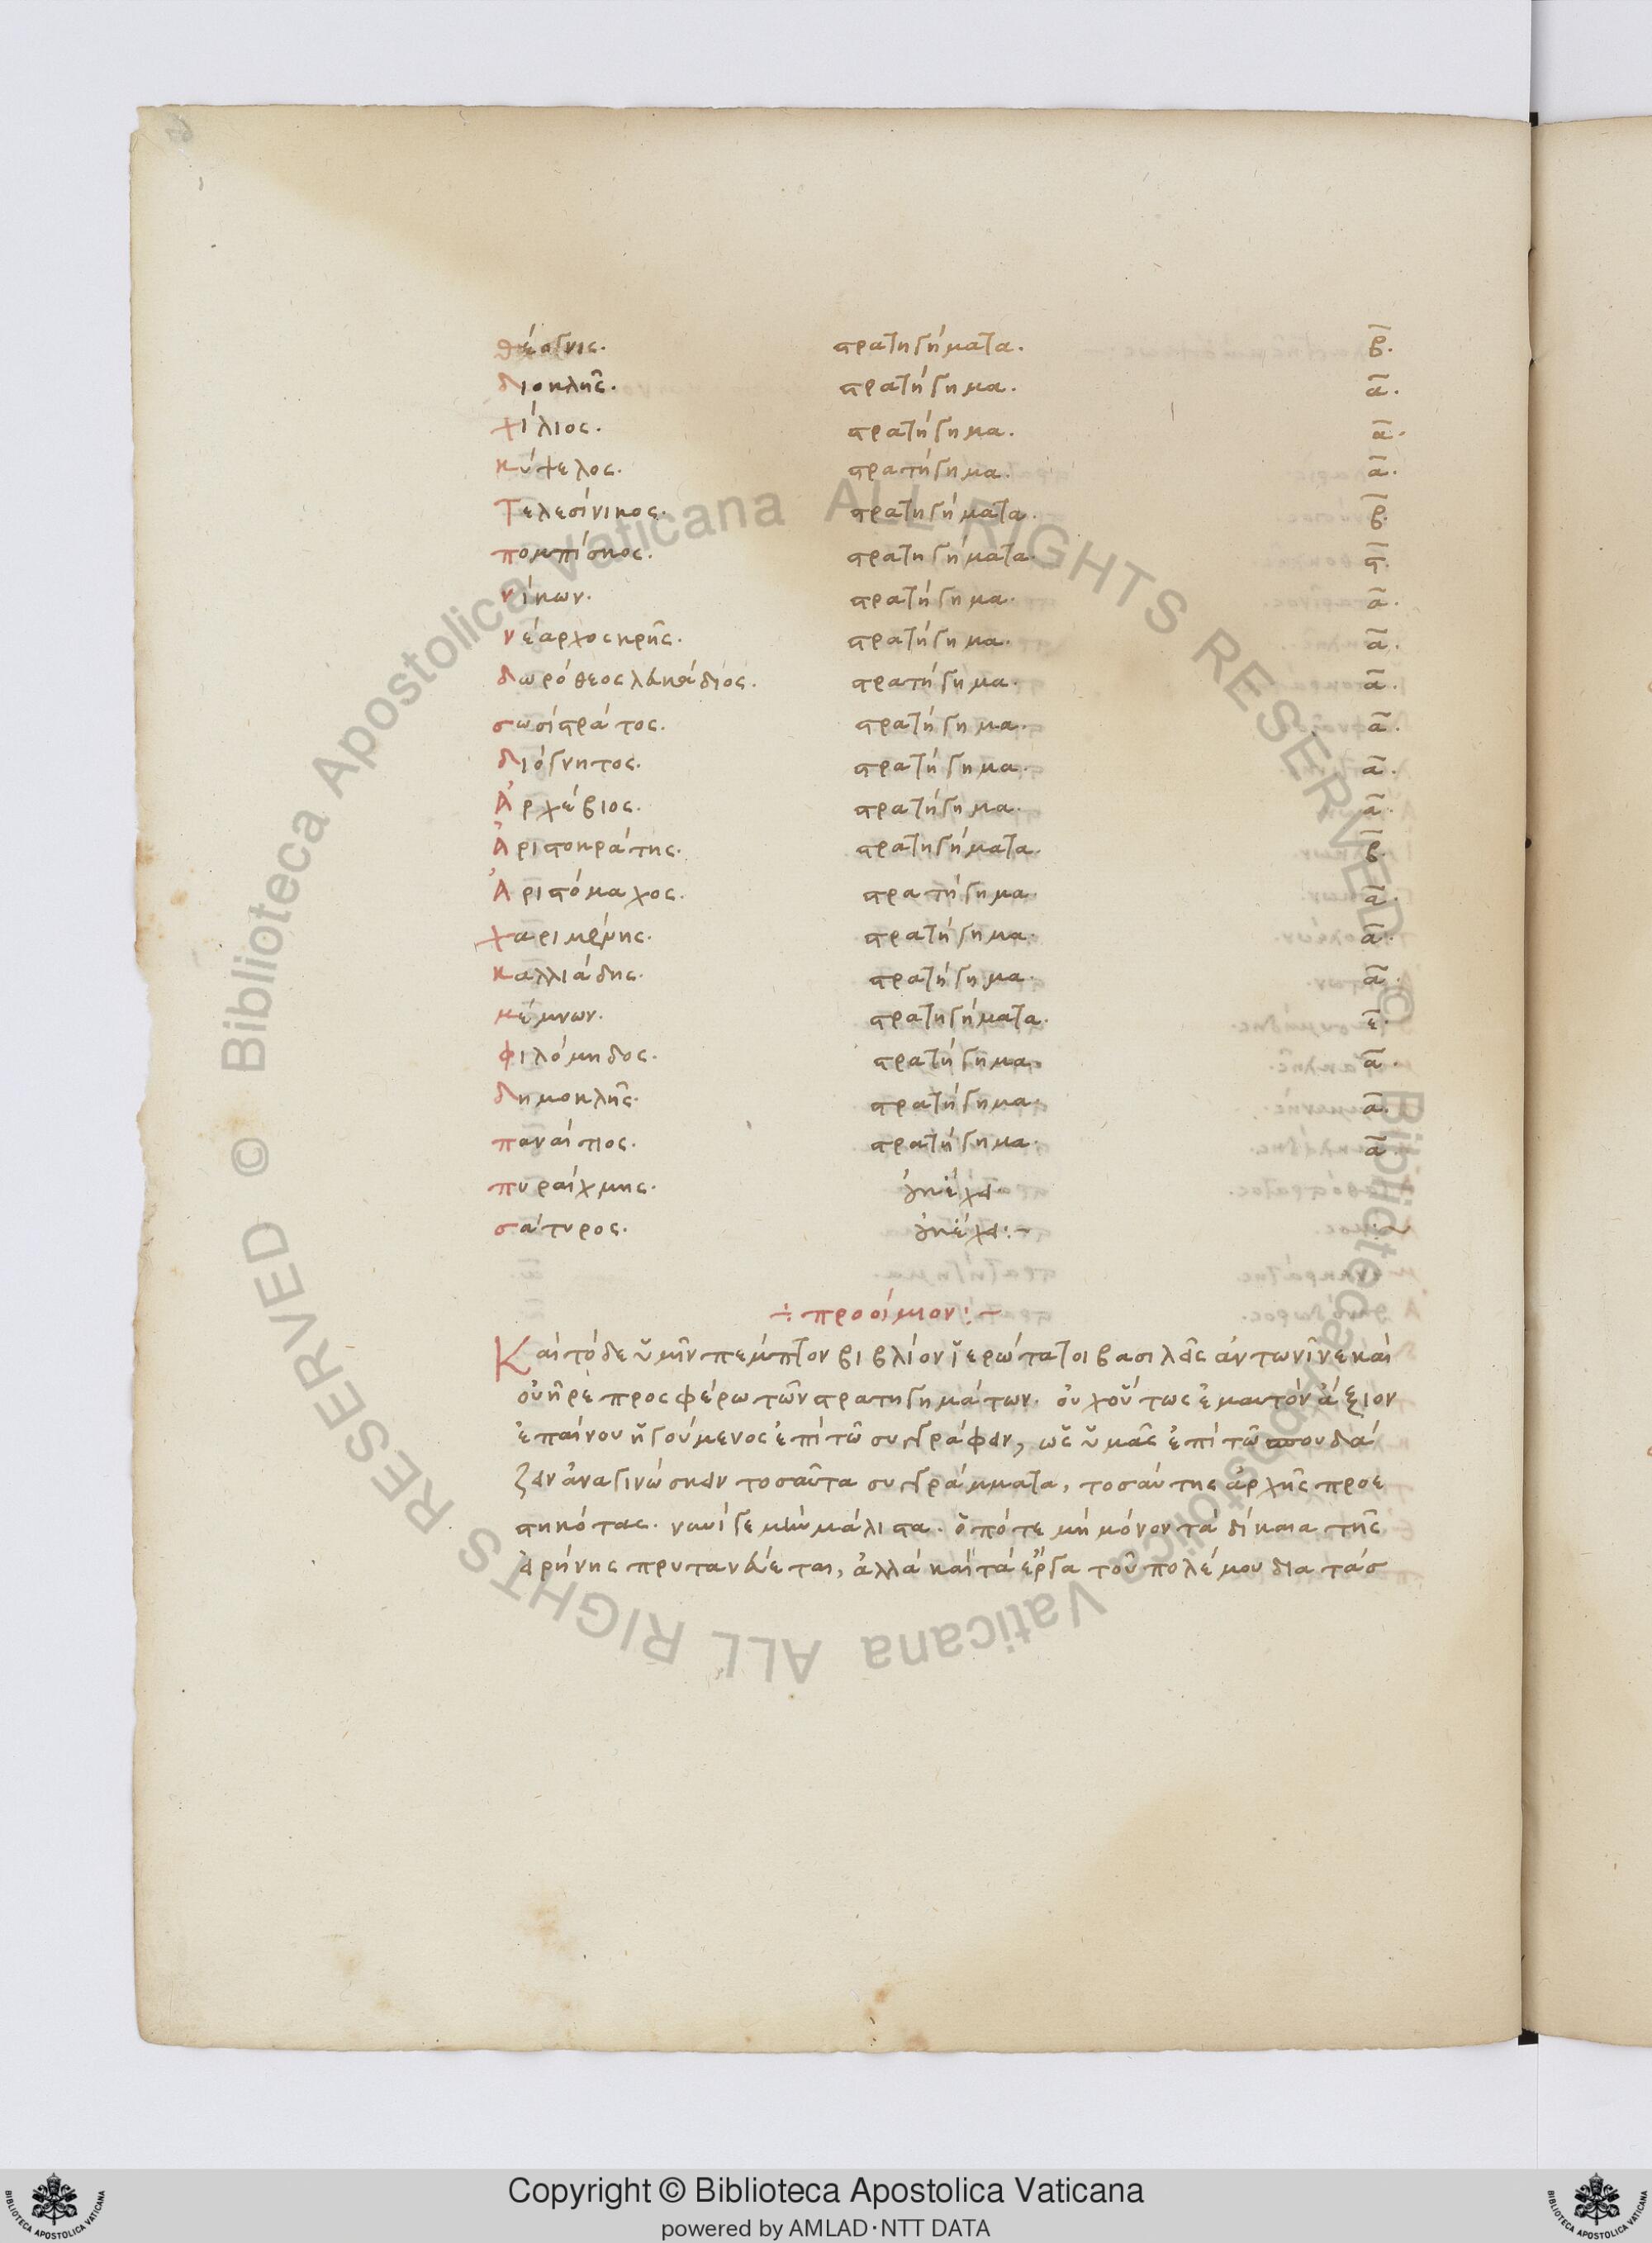 θέογνις. στρατηγήματα. β.
διοκλῆς. στρατήγημα. α.
χίλιος. στρατήγημα. α.
κύψελος. στρατήγημα. α.
Τελεσίνικος. στρατηγήματα. β.
πομπίσκος. στρατηγήματα. ϛ.
νίκων. στρατήγημα. α.
νέαρχος κρῆς. στρατήγημα. α.
δωρόθεος λευκάδιος. στρατήγημα. α.
σωσίστρατος. στρατήγημα. α.
διόγνητος. στρατήγημα. α.
Ἀρχέβιος. στρατήγημα. α.
Ἀριστοκράτης. στρατηγήματα. β.
Ἀριστόμαχος. στρατήγημα α.
χαριμένης. στρατήγημα. α.
καλλιάδης. στρατήγημα. α.
μέμνων. στρατηγήματα. ε.
φιλόμηδος. στρατήγημα α.
δημοκλῆς. στρατήγημα. α.
παναίτιος. στρατήγημα. α.
πυραίχμης. οὐκ ἔχει.
σάτυρος. οὐκ ἔχει:~
÷ προοίμιον:~
Καὶ τόδε ὑμῖν πέμπτον βιβλίον ἱερώτατοι βασιλεῖς ἀντωνῖνε καὶ
οὐῆρε προσφέρω τῶν στρατηγημάτων. οὐχ οὕτως ἐμαυτὸν ἄξιον
ἐπαίνου ἡγούμενος ἐπὶ τῶ συγγράφειν, ὡς ὑμᾶς ἐπὶ τῶ σπουδά
ζειν ἀναγινώσκειν τοσαῦτα συγγράμματα, τοσαύτης ἀρχῆς προε
στηκότας. νυνί γε μὴν μάλιστα. ὁπότε μὴ μόνον τὰ δίκαια τῆς
εἰρήνης πρυτανεύεται, ἀλλὰ καὶ τὰ ἔργα τοῦ πολέμου διατάσ
Copyright © Biblioteca Apostolica Vaticana
powered by AMLAD·NTT DATA
© Biblioteca Apostolica Vaticana ALL RIGHTS RESERVED
© Biblioteca Apostolica Vaticana ALL RIGHTS RESERVED